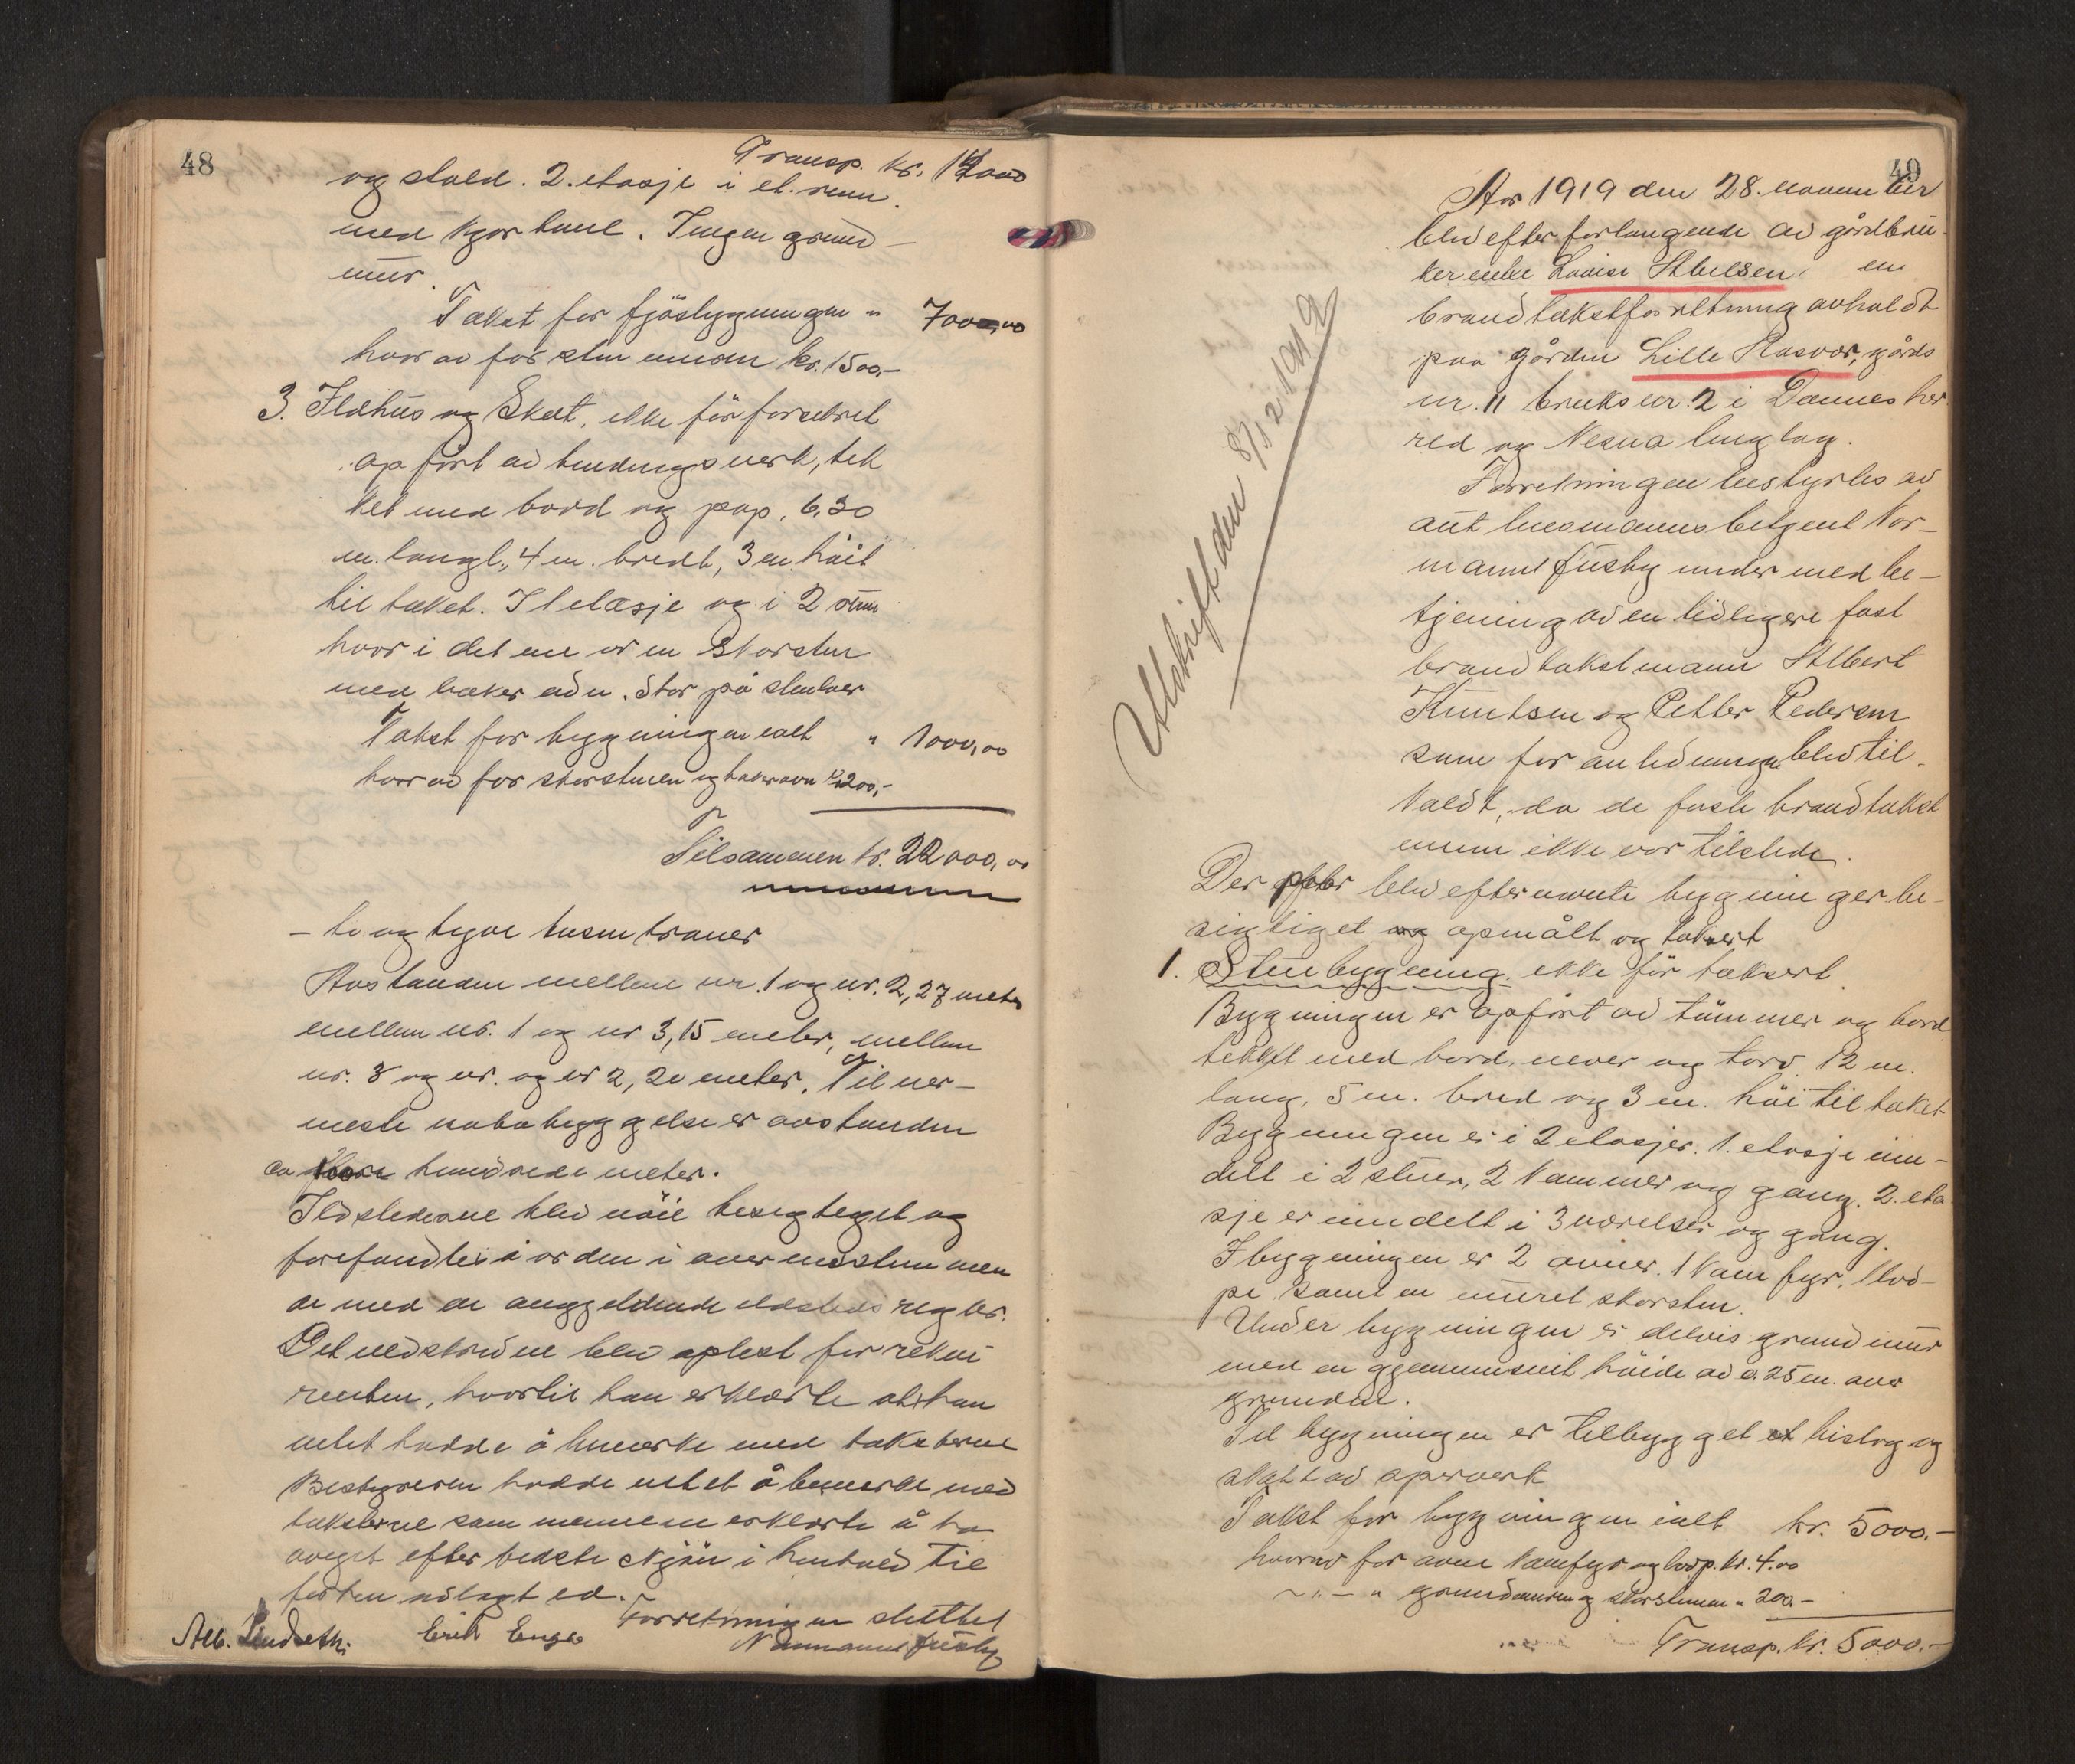 48
Transp. kr. 14000
og stald. 2. etasje i et rum
med kjørbane. Ingen grund-
mur.
Takst for fjösbygningen " 7000,00
hvorav for stenmuren kr. 1500,-
3. Ildhus og Skot, ikke för forsikret
opfört av bindingsverk, tæk
ket med bord og pap, 6,30
m. langt, 4 m. bredt, 3 m. höit
til taket. I 1 etasje og i 2 rum
hvor i det ene er en skorsten
med bakerovn. Står på stolper
Takst for bygningen ialt " 1000,00
hvorav for skorstenen og bakerovn kr 200,-
Tilsammen kr. 22000,00
- to og tyve tusen kroner
Avstanden mellem nr. 1 og nr. 2, 27 meter
mellem nr. 1 og nr 3, 15 meter, mellem
nr. 3 og nr. og nr 2, 20 meter. Til nær-
meste nabobyggelse er avstanden
ca flere hundrede meter.
Ildstederne blev nöie besigtiget og
forefandtes i orden i overensstemmen
de med de anggeldende ildsteds regler.
Det nedskrevne blev oplest for rekvi
renten, hvortil han erklærte at han
intet hadde å bemerke med taksterne
Bestyreren hadde intet å bemerke med
taksterne som mennene erklærte å ha
avgit efter bedste skjön i henhold til
forhen avlagt ed.
Forretningen sluttet
Alb. Lindseth. Erik Enge Normann Husby
49
Aar 1919 den 28. november
blev efter forlangende av gårdbru-
kerenke Lovise Abelsen, en
brandtakstforretning avholdt
paa gården Lille Aasvær, gårds
nr. 11 bruks nr. 2 i Dønnes her
red og Nesna tinglag.
Forretningen bestyrtes av
aut lensmannsbetjent Nor-
mann Husby under med be-
tjening av en tidligere fast
brandtakstmann Albert
Knutsen og Petter Pedersen
som for anledningen blev til-
kaldt, da de faste brandtakst
menn ikke var tilstede.
Utskrift den 8/12 1919
Derefter blev efternevnte bygninger be-
sigtiget og opmålt og taksert
1. Stuebygning, ikke för taksert.
Bygningen er opfört av tömmer og bord
tekket med bord, never og torv. 12 m.
lang, 5 m. bred og 3 m. höi til taket.
Bygningen er i 2 etasjer. 1. etasje inn-
delt i 2 stuer, 2 kammer og gang. 2. eta
sje er inndelt i 3 værelser og gang.
I bygningen er 2 ovner. 1 kamfyr, 1 kvd-
pe samt en muret skorsten.
Under bygningen er delvis grundmur
med en gjennemsnit höide av 0.25 m. over
grunden.
Til bygningen er tilbygget et bislag og
skott av sperverk
Takst for bygningen ialt kr. 5000.-
hvorav for ovne kamfyr og kvdp. kr. 4.00
- " - " grundmuren og skorstenen " 200.-
Transp. kr. 5000.-